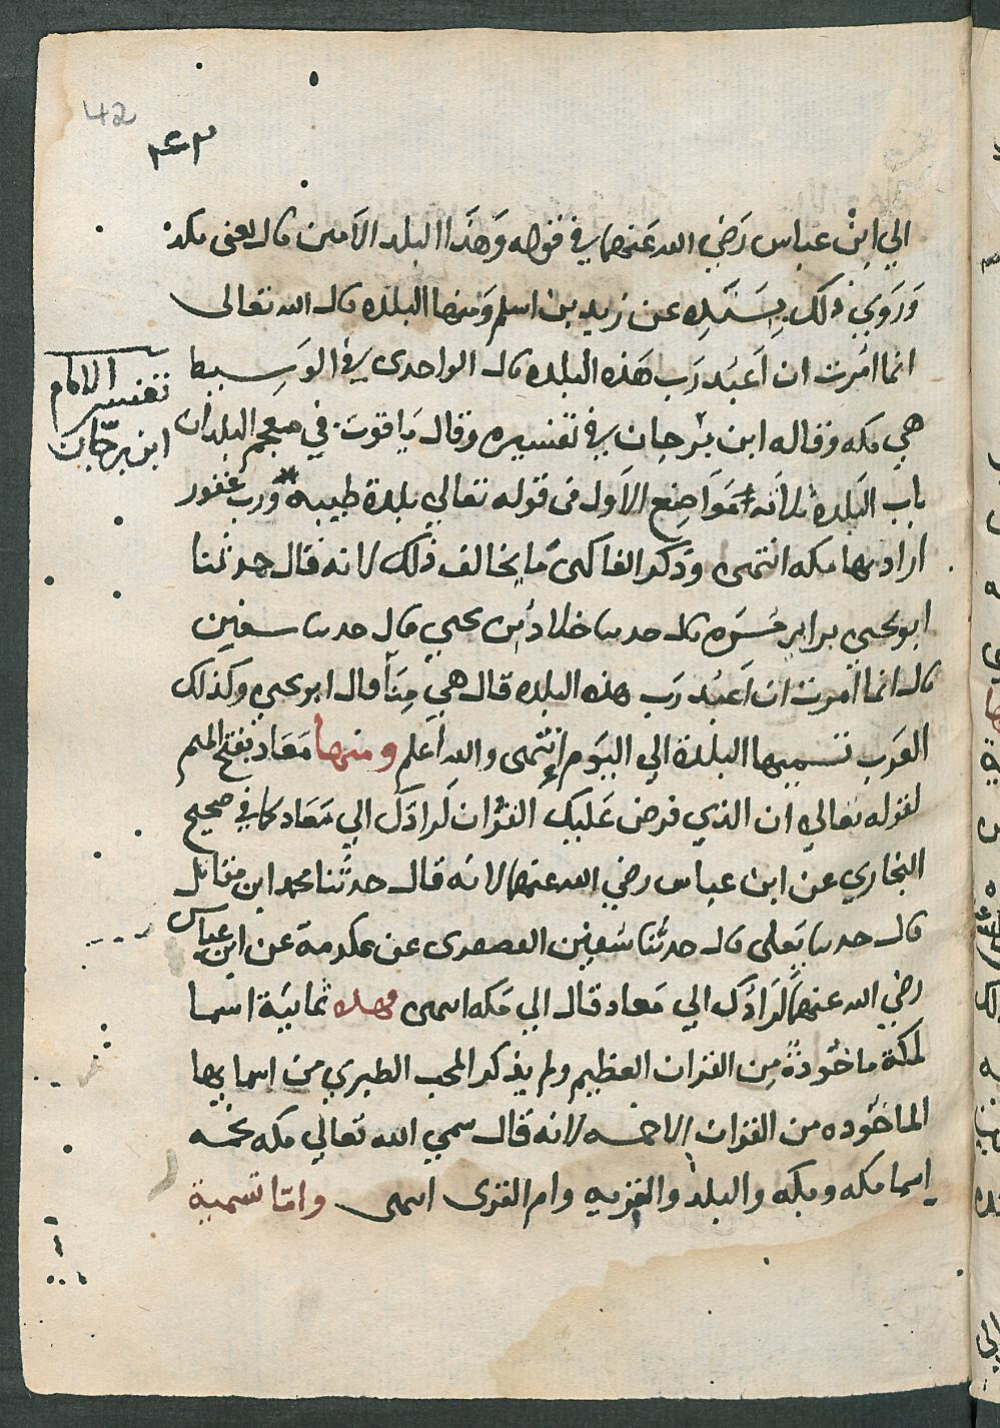 42
٤٢
الي ابن عباس رَضي الله عَنهما في قوله وَهَذَا البلد الاَمين قال يعنى مكة
وَرَوَي ذلك بِسَنَدِه عن زيد بن اسلم وَمنها البلده قال الله تعالى
انما امُرت ان اَعبُد رَب هَذه البلده قال الواحدى في الوَسِيط
هي مكه وقاله ابن بَرجان في تفسيره وقال يَاقوت في معجم البلدان
تفسير الامام
ابن برجّان
باب البَلدة ثلاثة مَوَاضِع الاَول فى قوله تعالي بلدة طيبه وَرب غفور
اراد بها مكه انتهى وذكر الفاكهى مَا يخالف ذلك لانه قال حدثنا
ابو يحيى بن ابي مَسَره قال حدثنا خلاد بن يحيي قال حدثنا سفين
قال انما اُمرت ان اَعبُد رَب هذه البلده قال هي مِنَا قال ابو يحيى وكذلك
العَرب تسميها البلدة الي اليَوم اِنتهى والله اَعلم ومنها مَعَاد بفتح الميم
لقوله تعالى ان الذي فرض عَليك القرْان لَرادّك الي مَعَاد كما في صحيح
البخاري عن ابن عباس رضي الله عنهما لانه قال حدثنا محمد ابن مقاتل
قال حدثنا يَعلى قال حدثنا سُفين العصفرى عن عكرمة عن ابن عباس
رضي الله عنهما لَرَادُك الي مَعاد قال الي مَكه انتهى فهذه ثمانيَة اسما
لمكة ماخوذةً مِن القران العظيم ولم يذكر المحب الطبري من اسمايها
الماخوذه من القران الا خمسه لانه قال سمي الله تَعالي مكه بخمسه
اسما مكه وبكه والبلد والقريه وام القرى انتهى واما تسمية